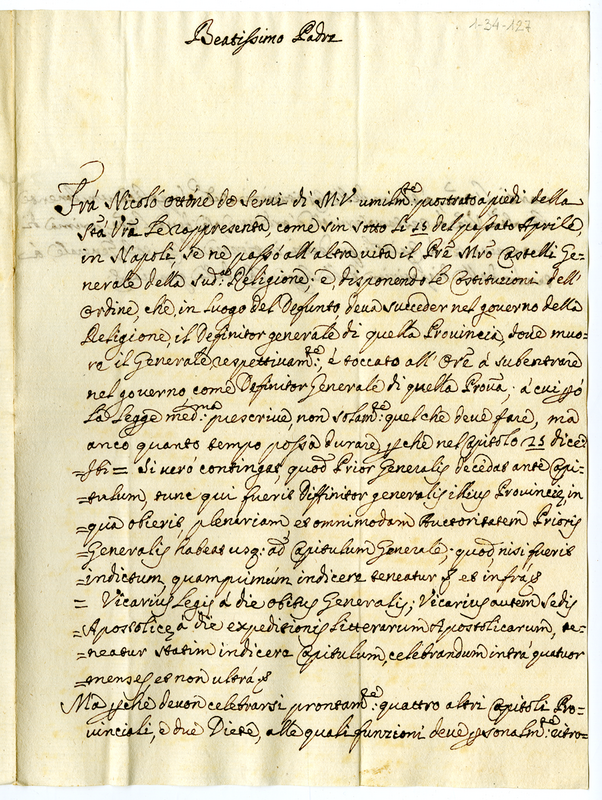 1-34-127
Beatissimo Padre
Frà Nicolò ordine de Servi di M.V. umilm.te prostrato à piedi della
Stà Vrã Le rappresenta come sin sotto li 15 del passato Aprile,
in Napoli, se ne passò all'altra vita il Prẽ Mrõ Castelli Ge-
nerale della sud.a Religione; e, disponendo le Costituzioni dell'
Ordine, che in luogo del Defunto deva succeder nel governo della
Religione, il Definitor generale di quella Provincia, dove muo-
ra il Generale respettivam.te, è toccato all' Orẽ à subentrare
nel governo, come Definitor Generale di quella Provã; à cui però
La Legge med.ma prescrive, non solam.te quel che deve fare, ma
anco quanto tempo possa durare, perche nel Capitolo 25 dicesi
= Si verò contingat, quod Prior Generalis decedat ante Capi-
=tulum, tunc qui fuerit Diffinitor generalis illius Provinciæ, in
=qua obierit, plenariam et omnimodam Auctoritatem Prioris
=Generalis habeat usq: ad Capitulum Generale; quod, nisi fuerit
=indictum, quamprimùm indicere teneatur et infrà
= Vicarius Legis à die obitus Generalis; Vicarius autem Sedis
=Apostolicę à die expeditionis litterarum Apostolicarum, te-
=neatur statim indicere Capitulum, celebrandum intrà quatuor
=menses et non ultrà
Ma perche devon celebrarsi prontam.te: quattro altri Capitoli Pro-
vinciali, e due Diete, alle quali funzioni deve personalm.te: ritro-